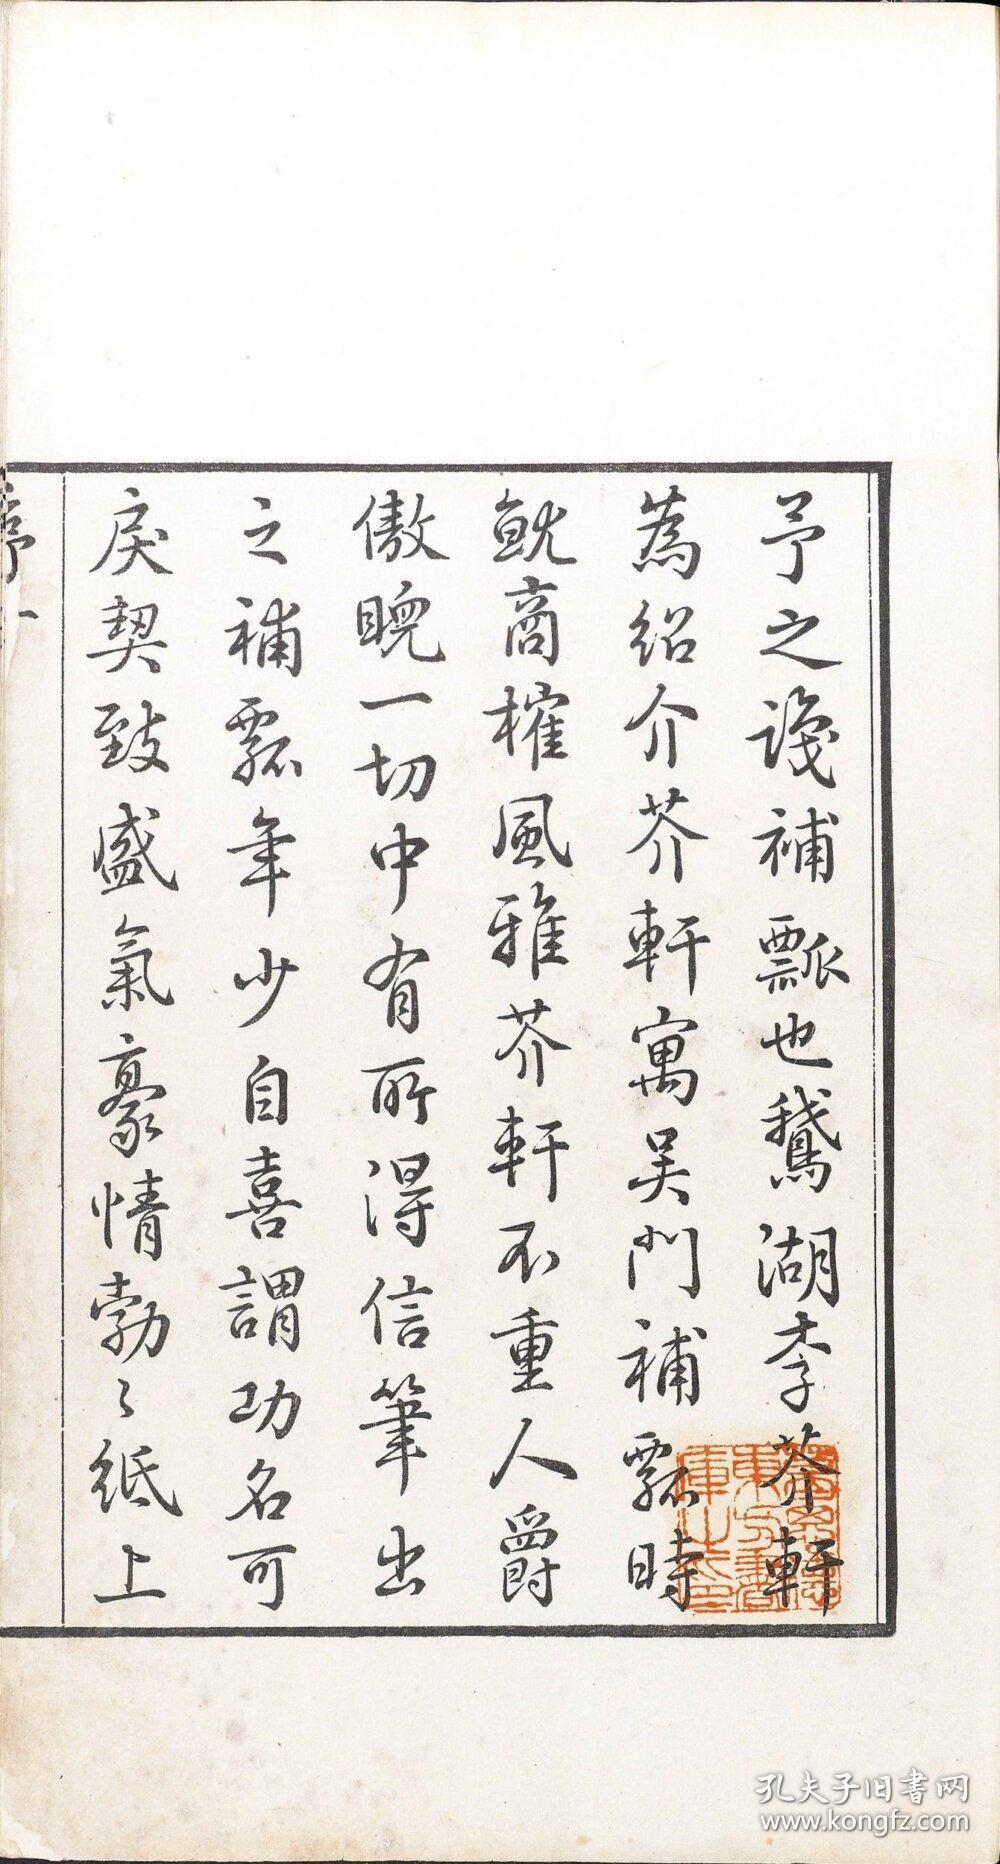 予之識補瓢也鵝湖李芥軒
為紹介芥軒寓吴門補瓢時
就商榷風雅芥軒不重人爵
傲睨一切中有所得信筆出
之補瓢年少自喜謂功名可
戾契致盛氣豪情勃〻紙上
序一
孔夫子旧書网
www.kongfz.com